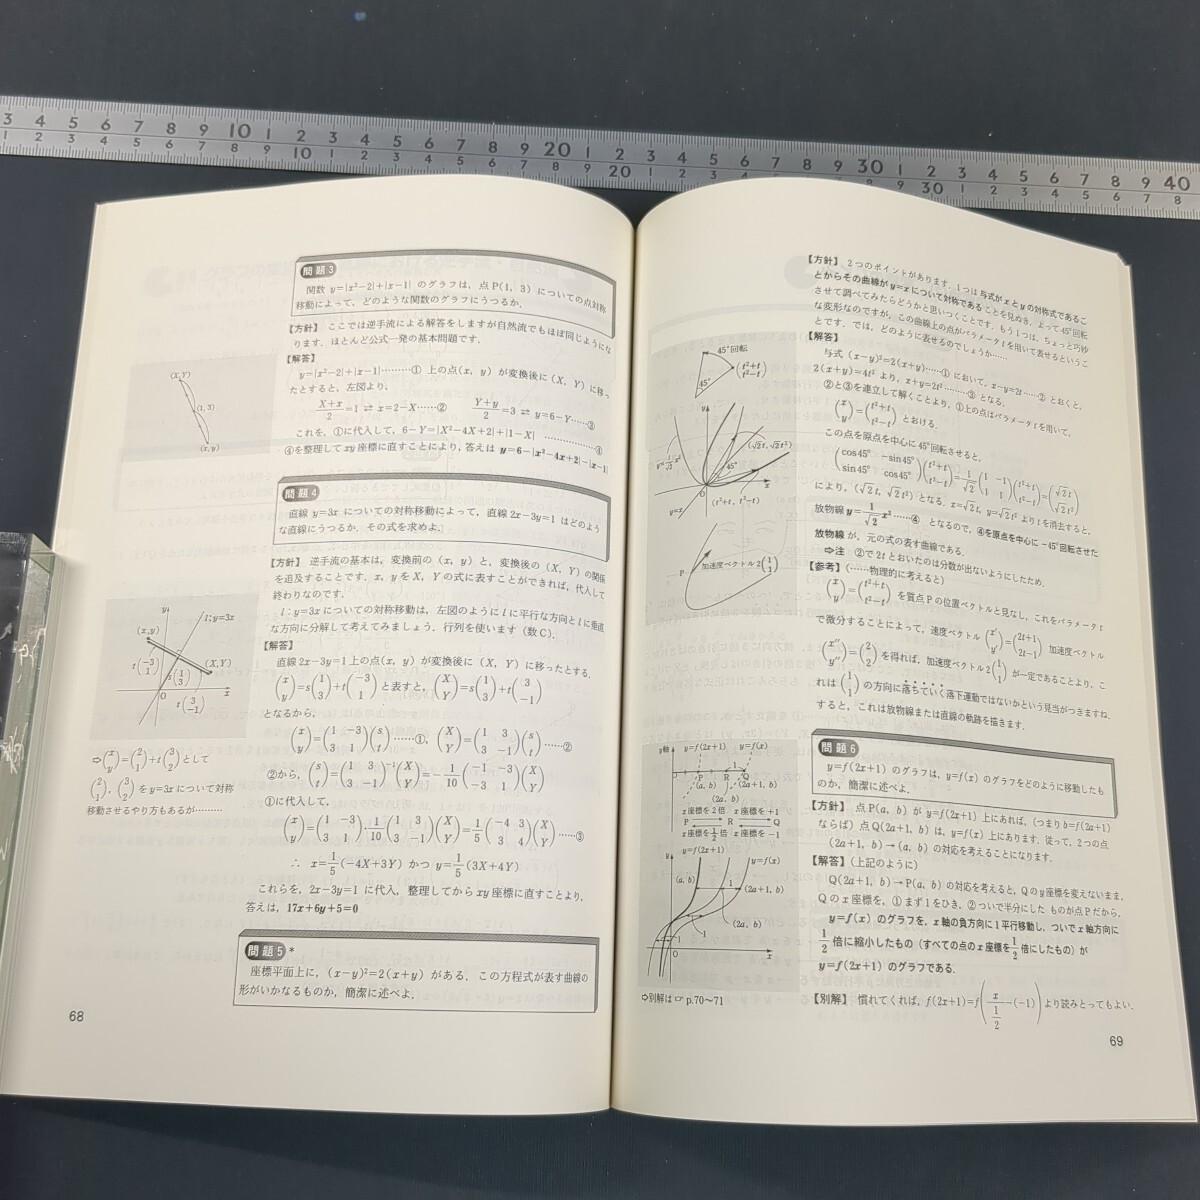 3 4 5 6 7 8 9 10 1 2 3 4 5 6 7 8 9 20 1 2 3 4 5 6 7 8 9 30 1 2 3 4 5 6 7 8 9 40
問題3
関数 y=|x²−2|+|x−1| のグラフは，点P(1, 3) についての点対称
移動によって，どのような関数のグラフにうつるか．
【方針】 ここでは逆手流による解答をしますが自然流でもほぼ同じようにな
ります．ほとんど公式一発の基本問題です．
【解答】
y=|x²−2|+|x−1|………① 上の点(x, y) が変換後に (X, Y) に移っ
たとすると，左図より，
(X+x)/2=1 ⇄ x=2−X……② (Y+y)/2=3 ⇄ y=6−Y……③
これを，①に代入して，6−Y=|X²−4X+2|+|1−X| ……………④
④を整理して xy 座標に直すことにより，答えは y=6−|x²−4x+2|−|x−1|
(X, Y)
(1, 3)
(x, y)
問題4
直線 y=3x についての対称移動によって，直線 2x−3y=1 はどのよう
な直線にうつるか．その式を求めよ．
【方針】 逆手流の基本は，変換前の (x, y) と，変換後の (X, Y) の関係
を追及することです．x, y を X, Y の式に表すことができれば，代入して
終わりなのです．
l : y=3x についての対称移動は，左図のように l に平行な方向と l に垂直
な方向に分解して考えてみましょう．行列を使います（数C）．
【解答】
直線 2x−3y=1 上の点(x, y) が変換後に (X, Y) に移ったとする．
(x y)=s(1 3)+t(−3 1) と表すと，(X Y)=s(1 3)+t(3 −1)
となるから，
(x y)=(1 −3 3 1)(s t)……①，(X Y)=(1 3 3 −1)(s t)……②
②から，(s t)=(1 3 3 −1)⁻¹(X Y)=−1/10(−1 −3 −3 1)(X Y)
①に代入して，
(x y)=(1 −3 3 1)·1/10(1 3 3 −1)(X Y)=1/5(−4 3 3 4)(X Y)……③
∴ x=1/5(−4X+3Y) かつ y=1/5(3X+4Y)
これらを，2x−3y=1 に代入，整理してから xy 座標に直すことより，
答えは，17x+6y+5=0
y
l;y=3x
(x, y)
t(−3 1)
s(1 3)
(X, Y)
0
x
t(3 −1)
⇨(x y)=(2 1)+t(3 2)として
(2 1), (3 2) を y=3x について対称
移動させるやり方もあるが………
問題5*
座標平面上に，(x−y)²=2(x+y) がある．この方程式が表す曲線の
形がいかなるものか，簡潔に述べよ．
68
【方針】 2つのポイントがあります．1つは与式が x と y の対称式であるこ
とからその曲線が y=x について対称であることを見ぬき，よって45°回転
させて調べてみたらどうかと思いつくことです．もう1つは，ちょっと巧妙
な変形なのですが，この曲線上の点がパラメータ t を用いて表せるというこ
とです．では，どのように表せるのでしょうか……
【解答】
与式 (x−y)²=2(x+y)……① において，x−y=2t……② とおくと，
2(x+y)=4t² より，x+y=2t²………③ となる．
②と③を連立して解くことより，①上の点はパラメータ t を用いて，
(x y)=(t²+t t²−t) とおける．
この点を原点を中心に45°回転させると，
(cos45° −sin45° sin45° cos45°)(t²+t t²−t)=1/√2(1 −1 1 1)(t²+t t²−t)=(√2t √2t²)
により，(√2t, √2t²) となる．x=√2t, y=√2t² より t を消去すると，
放物線 y=1/√2 x²……④ となるので，④を原点を中心に −45°回転させた
放物線が，元の式の表す曲線である．
⇨注 ②で 2t とおいたのは分数が出ないようにしたため．
【参考】（……物理的に考えると）
(x y)=(t²+t t²−t) を質点Pの位置ベクトルと見なし，これをパラメータ t
で微分することによって，速度ベクトル(x′ y′)=(2t+1 2t−1) 加速度ベクトル
(x″ y″)=(2 2) を得れば，加速度ベクトル2(1 1) が一定であることより，こ
れは (1 1) の方向に落ちていく落下運動ではないかという見当がつきますね．
すると，これは放物線または直線の軌跡を描きます．
45°回転
(t²+t t²−t)
45°
y
y=1/√2 x²
(√2t, √2t²)
45°
0
x
y=x
(t²+t, t²−t)
P
加速度ベクトル2(1 1)
問題6
y=f(2x+1) のグラフは，y=f(x) のグラフをどのように移動したも
のか，簡潔に述べよ．
【方針】 点P(a, b) が y=f(2x+1) 上にあれば，(つまり b=f(2a+1)
ならば) 点Q(2a+1, b) は，y=f(x) 上にあります．従って，2つの点
(2a+1, b)→(a, b) の対応を考えることになります．
【解答】（上記のように）
Q(2a+1, b)→P(a, b) の対応を考えると，Qの y 座標を変えないまま，
Qの x 座標を，① まず1をひき，② ついで半分にした ものが点Pだから，
y=f(x) のグラフを，x 軸の負方向に1平行移動し，ついで x 軸方向に
1/2 倍に縮小したもの（すべての点の x 座標を 1/2 倍にしたもの）が
y=f(2x+1) のグラフである．
【別解】 慣れてくれば，f(2x+1)=f(x/(1/2)−(−1)) より読みとってもよい．
y軸
y=f(2x+1) y=f(x)
1
0 P R Q
(a, b) (2a+1, b)
(2a, b)
x座標を2倍 x座標を+1
P R Q
x座標を1/2倍 x座標を−1
y=f(2x+1)
y=f(x)
(a, b)
1
(2a+1, b)
(2a, b)
−1
1
0
x
⇨別解は☞ p.70〜71
69